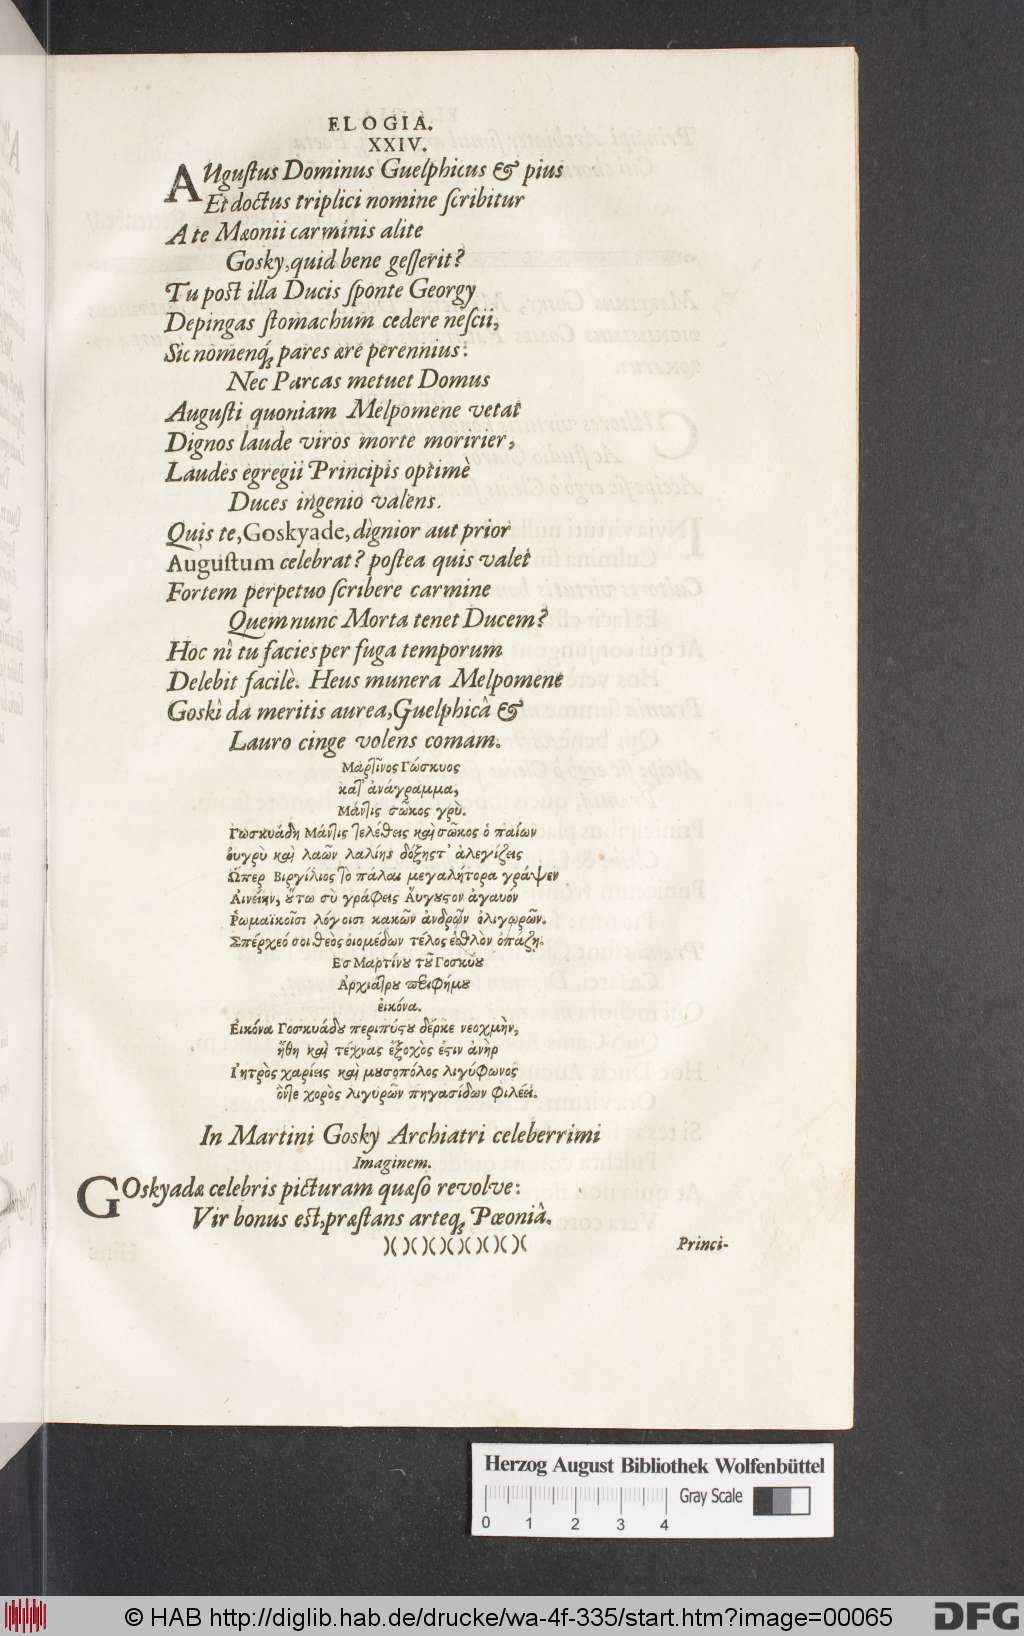 ELOGIA.
XXIV.
AUguſtus Dominus Guelphicus & pius
Et doctus triplici nomine ſcribitur
A te Mæonii carminis alite
Gosky, quid bene geſſerit?
Tu poſt illa Ducis ſponte Georgy
Depingas ſtomachum cedere neſcii,
Sic nomenq́; pares ære perennius:
Nec Parcas metuet Domus
Auguſti quoniam Melpomene vetat
Dignos laude viros morte moririer,
Laudes egregii Principis optimè
Duces ingenio valens.
Quis te, Goskyade, dignior aut prior
Auguſtum celebrat? poſtea quis valet
Fortem perpetuo ſcribere carmine
Quem nunc Morta tenet Ducem?
Hoc nî tu facies per fuga temporum
Delebit facilè. Heus munera Melpomene
Goskî da meritis aurea, Guelphicâ &
Lauro cinge volens comam.
Μαρτῖνος Γώσκυος
κατ' ἀνάγραμμα,
Μάντις σῶκος γρὺ.
Γωσκυάδη Μάντις τελέθεις καὶ σῶκος ὁ παίων
ὀυγρὺ καὶ λαῶν λαλίης δόξηστ' ἀλεγίζεις
Ὥπερ Βιργίλιος τὸ πάλαι μεγαλήτορα γράψεν
Αινείην, ὅτω σὺ γράφεις Ἄυγυςον ἀγαυόν
Ῥωμαϊκοῖσι λόγοισι κακῶν ἀνδρῶν ὀλιγωρῶν.
Σπέρχεό σοι θεὸς ὁιομέδων τέλος ἐθλὸν ὀπάζῃ.
Εσ Μαρτίνȣ τȣ͂ Γοσκύȣ
Ἀρχιάτρȣ περιφήμȣ
ἐικόνα.
Εἰκόνα Γοσκυάδȣ περιπύςȣ δέρκε νεοχμὴν,
ἤθη καὶ τέχνας ἔξοχὸς ἐςιν ἀνὴρ
Ἰητρὸς χαρίεις καὶ μȣσοπόλος λιγύφωνος
ὃντε χορὸς λιγυρῶν πηγασίδων φιλέει.
In Martini Gosky Archiatri celeberrimi
Imaginem.
GOskyadæ celebris picturam quæſo revolve:
Vir bonus eſt, præſtans arteq; Pœoniâ.
)( )( )( )( )( )( )( )(
Princi-
Herzog August Bibliothek Wolfenbüttel
Gray Scale
0 1 2 3 4
© HAB http://diglib.hab.de/drucke/wa-4f-335/start.htm?image=00065
DFG